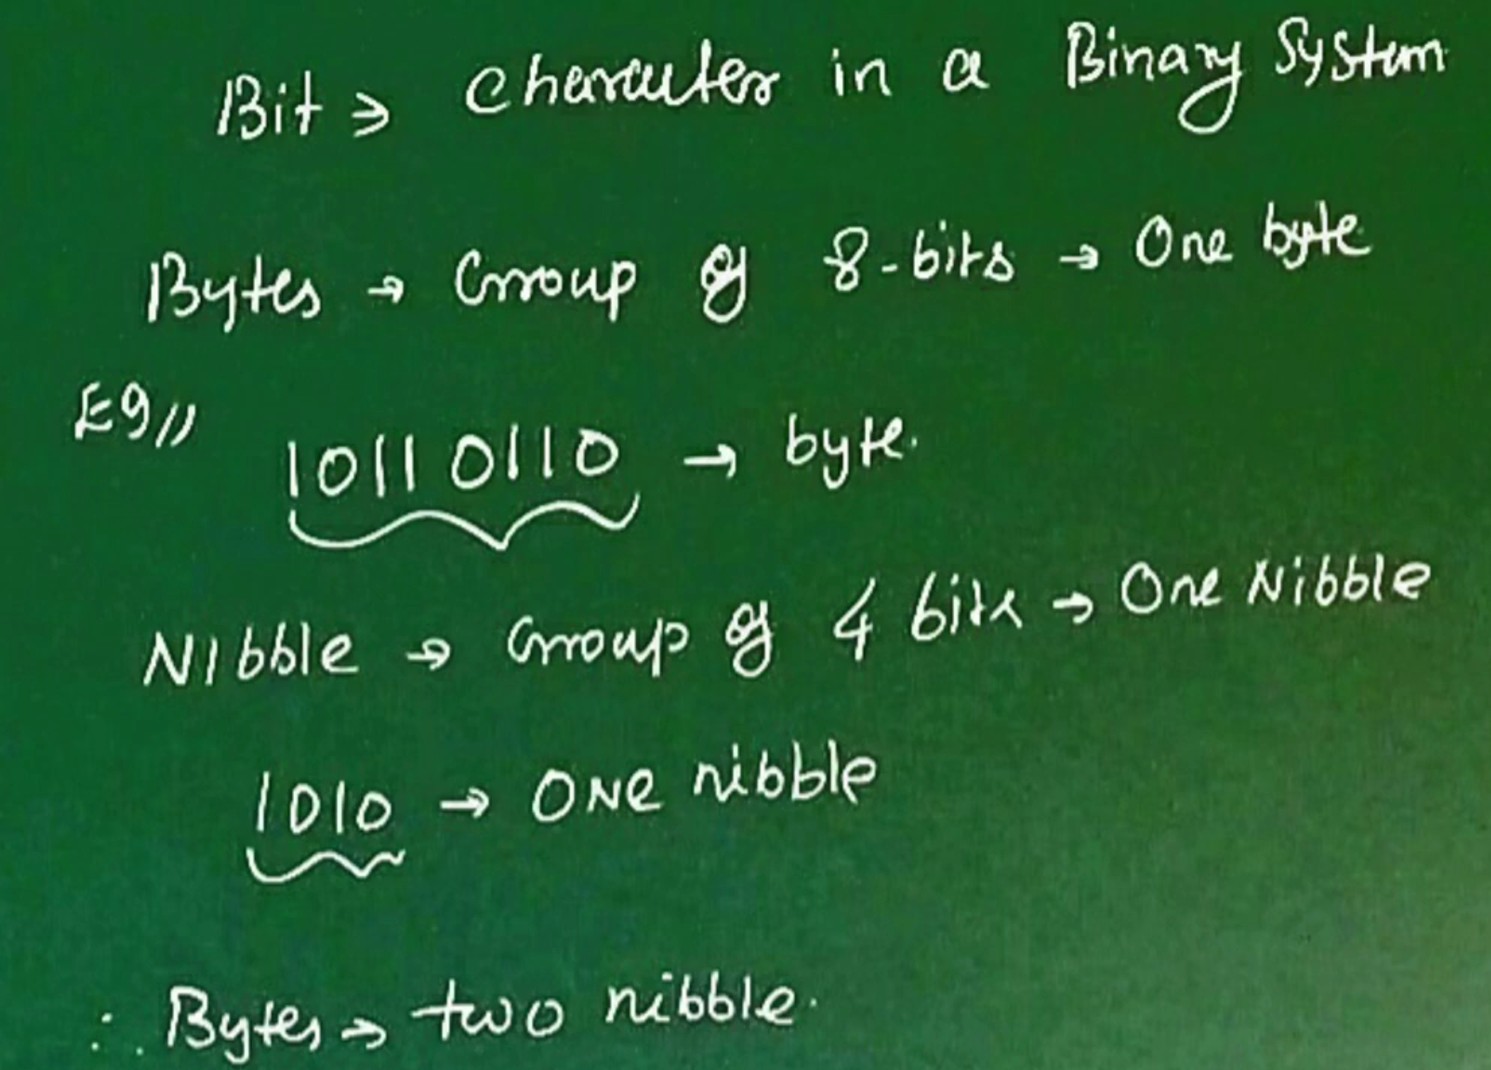 Bit → Character in a Binary System
Bytes → Group of 8-bits → One byte
Eg//
10110110 → byte.
Nibble → Group of 4 bits → One Nibble
1010 → One nibble
∴ Bytes → two nibble.